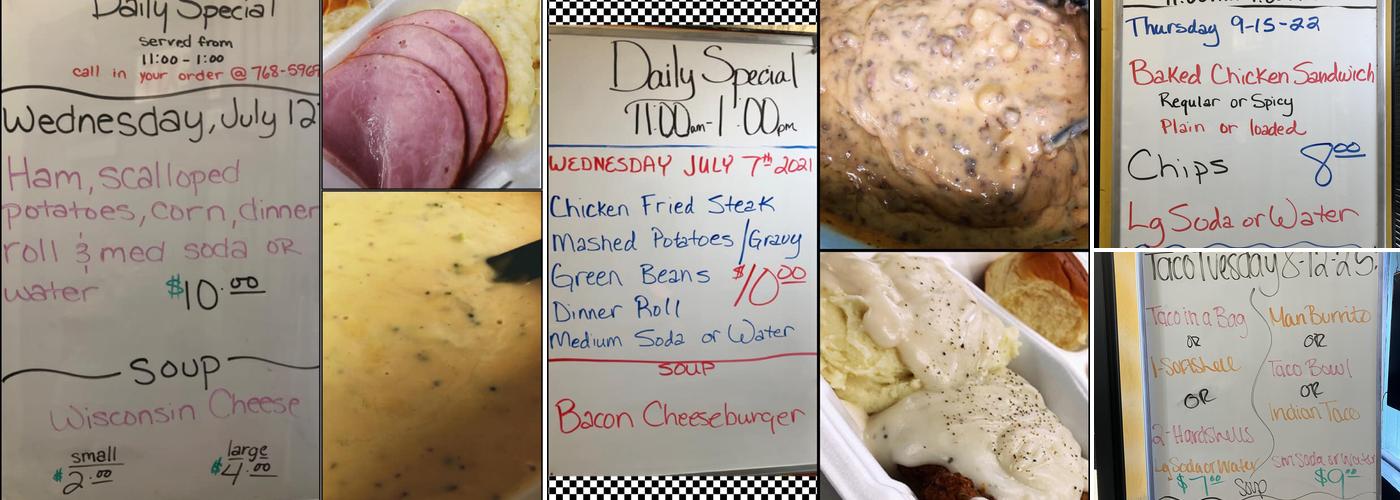 Daily Special
served from
11:00 - 1:00
call in your order @ 768-5969
Wednesday, July 12
Ham, scalloped
potatoes, corn, dinner
roll & med soda OR
water $10.00
Soup
Wisconsin Cheese
small large
$2.00 $4.00
Daily Special
11:00am-1:00pm
WEDNESDAY JULY 7th 2021
Chicken Fried Steak
Mashed Potatoes/Gravy
Green Beans $10.00
Dinner Roll
Medium Soda or Water
SOUP
Bacon Cheeseburger
Thursday 9-15-22
Baked Chicken Sandwich
Regular or Spicy
Plain or loaded
Chips 8.00
Lg Soda or Water
Taco Tuesday 8-12-25
Taco in a Bag
OR
1-Softshell
OR
2-Hardshells
Lg Soda or Water
$7.00
Man Burrito
OR
Taco Bowl
OR
Indian Taco
Sm Soda or Water
$9.00
Soup